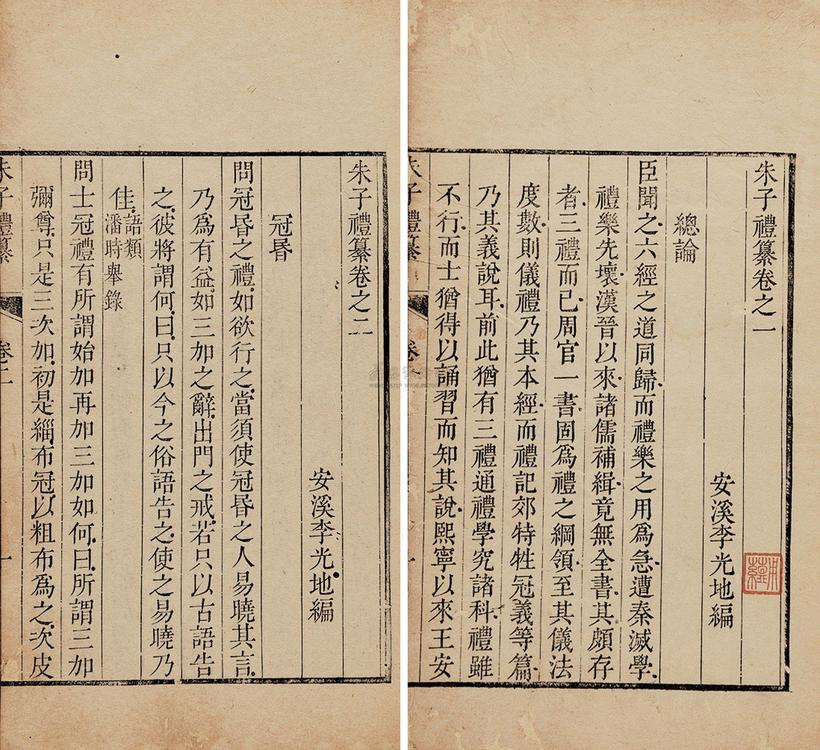 朱子禮纂卷之一
安溪李光地編
總論
臣聞之六經之道同歸而禮樂之用爲急遭秦滅學
禮樂先壞漢晉以來諸儒補緝竟無全書其頗存
者三禮而已周官一書固爲禮之綱領至其儀法
度數則儀禮乃其本經而禮記郊特牲冠義等篇
乃其義說耳前此猶有三禮通禮學究諸科禮雖
不行而士猶得以誦習而知其說熙寧以來王安
朱子禮纂
朱子禮纂卷之二
安溪李光地編
冠昏
問冠昏之禮如欲行之當須使冠昏之人易曉其言
乃爲有益如三加之辭出門之戒若只以古語告
之彼將謂何曰只以今之俗語告之使之易曉乃
佳語類
潘時舉錄
問士冠禮有所謂始加再加三加如何曰所謂三加
彌尊只是三次加初是緇布冠以粗布爲之次皮
朱子禮纂
卷二
一